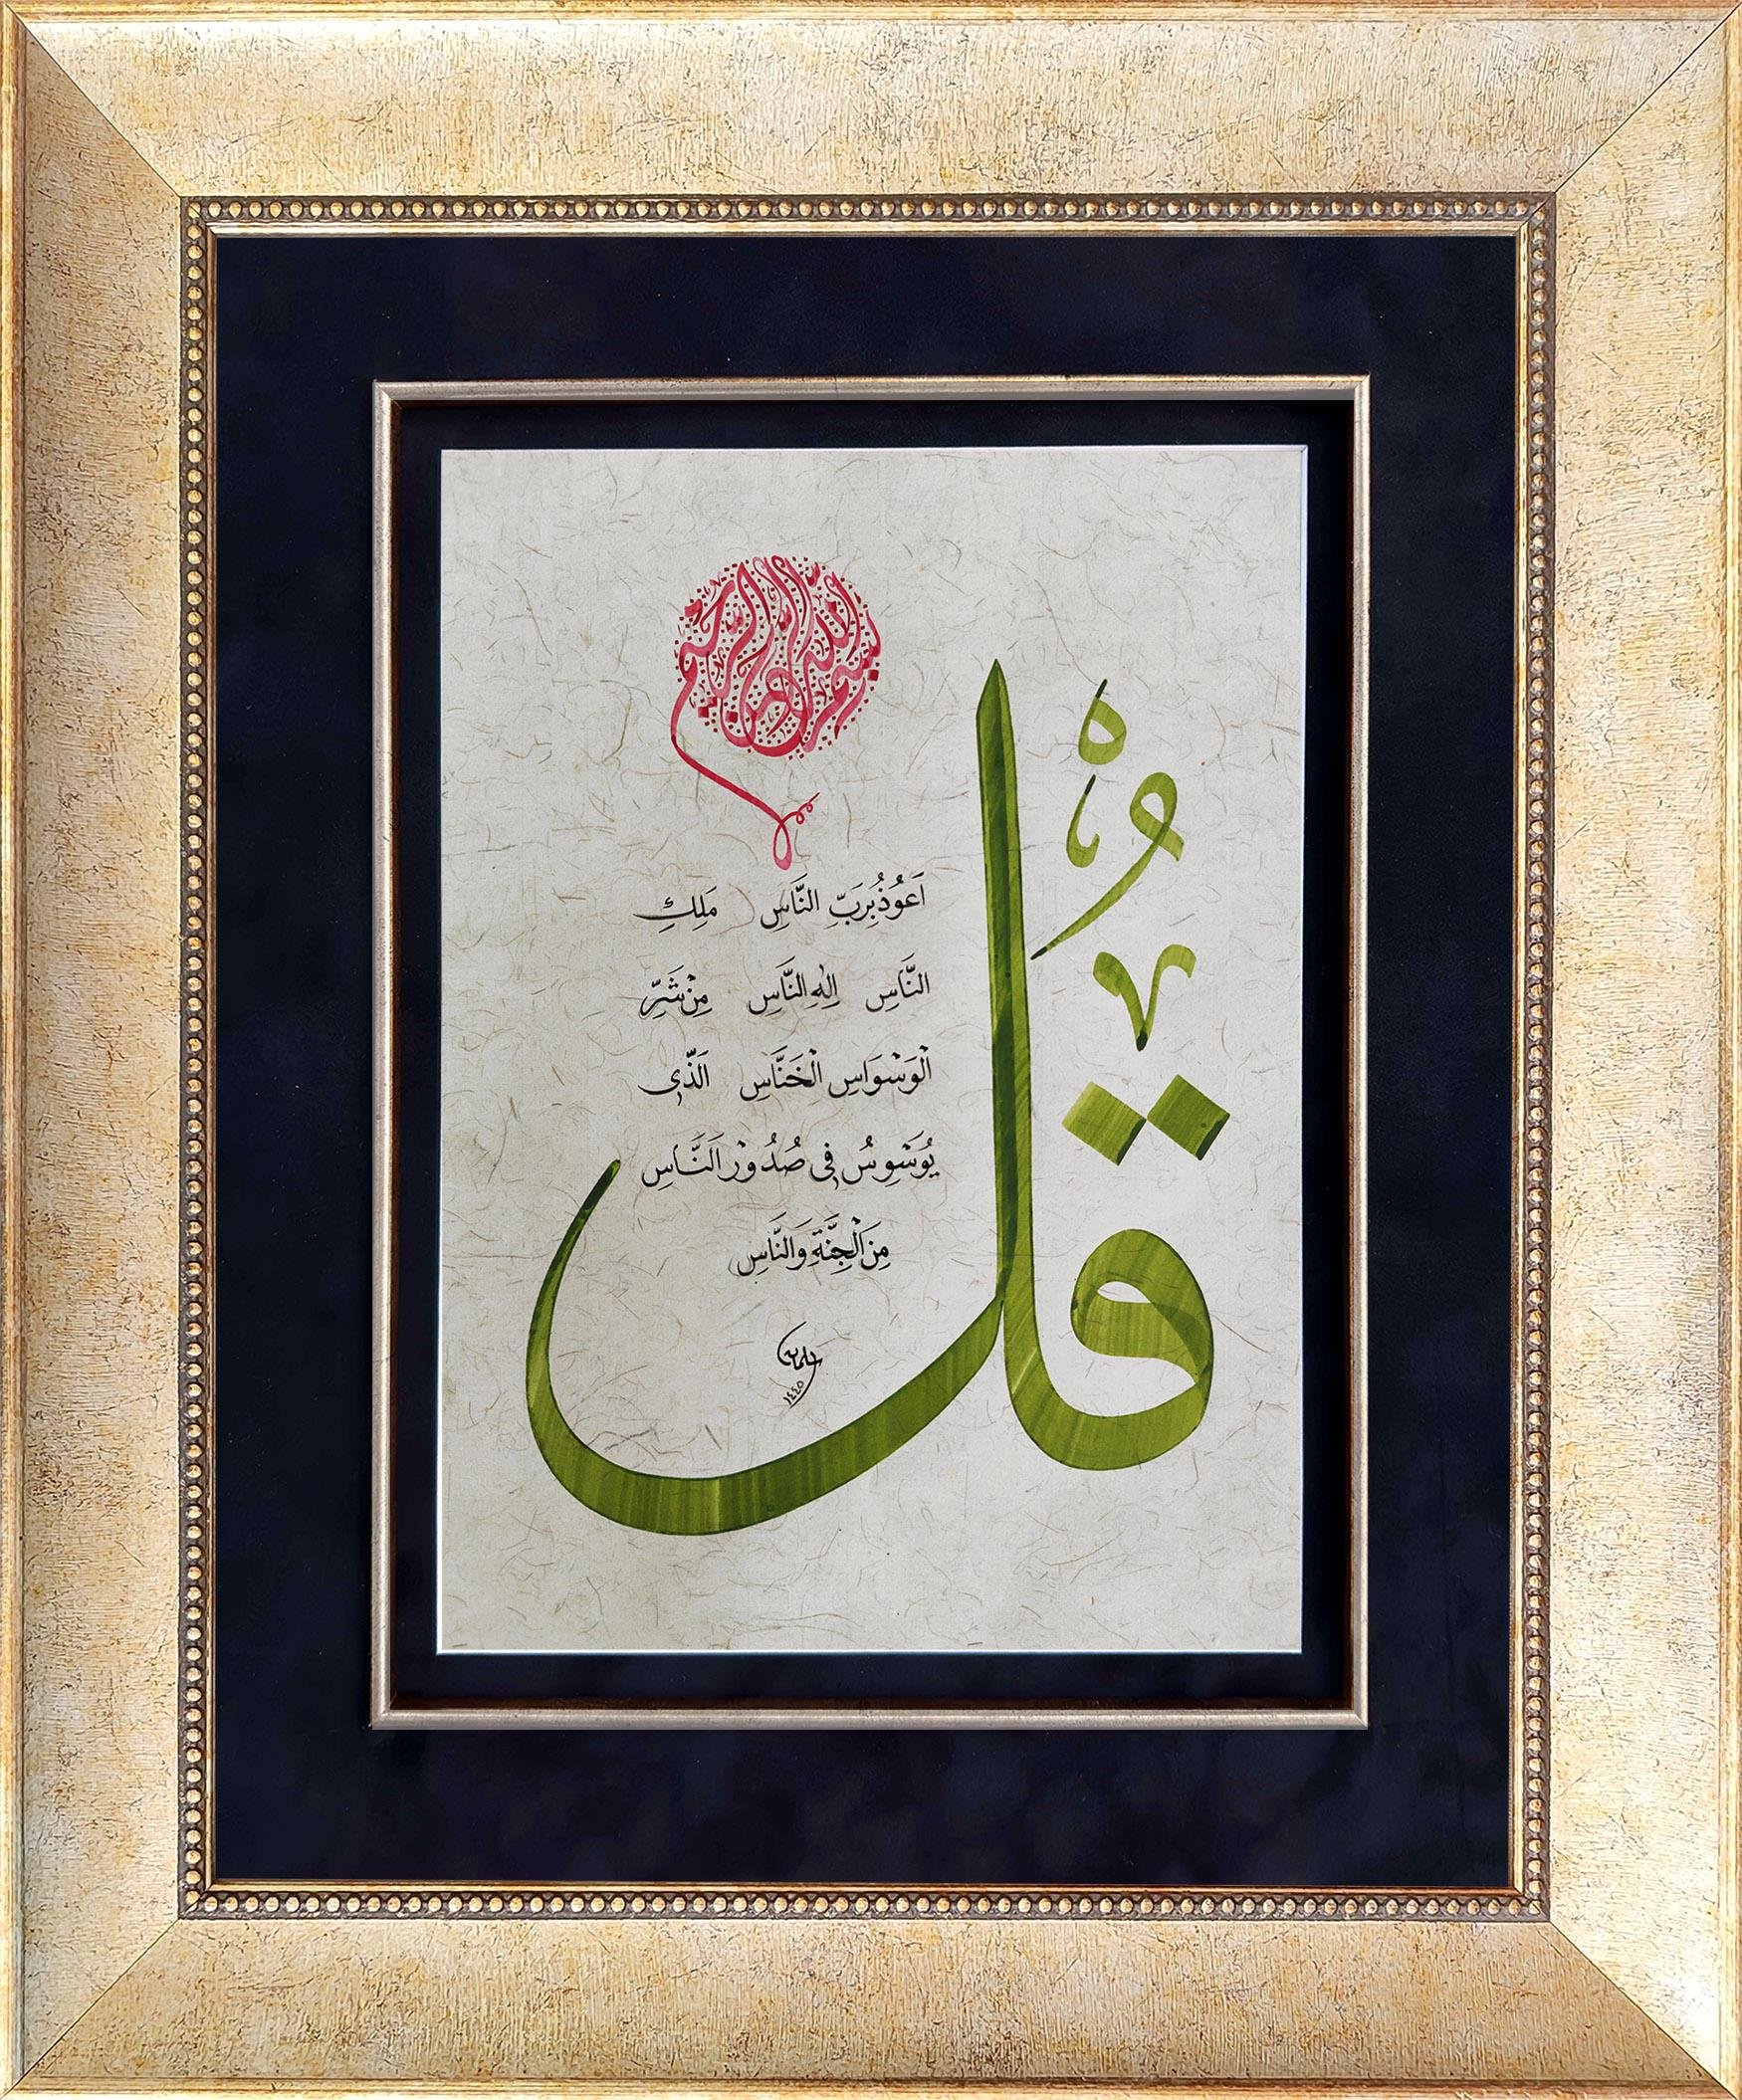 بسم الله الرحمن الرحيم
قُلْ
اَعُوذُ بِرَبِّ النَّاسِ مَلِكِ
النَّاسِ اِلٰهِ النَّاسِ مِنْ شَرِّ
الْوَسْوَاسِ الْخَنَّاسِ اَلَّذِى
يُوَسْوِسُ فِى صُدُورِ النَّاسِ
مِنَ الْجِنَّةِ وَالنَّاسِ
١٤٤٥